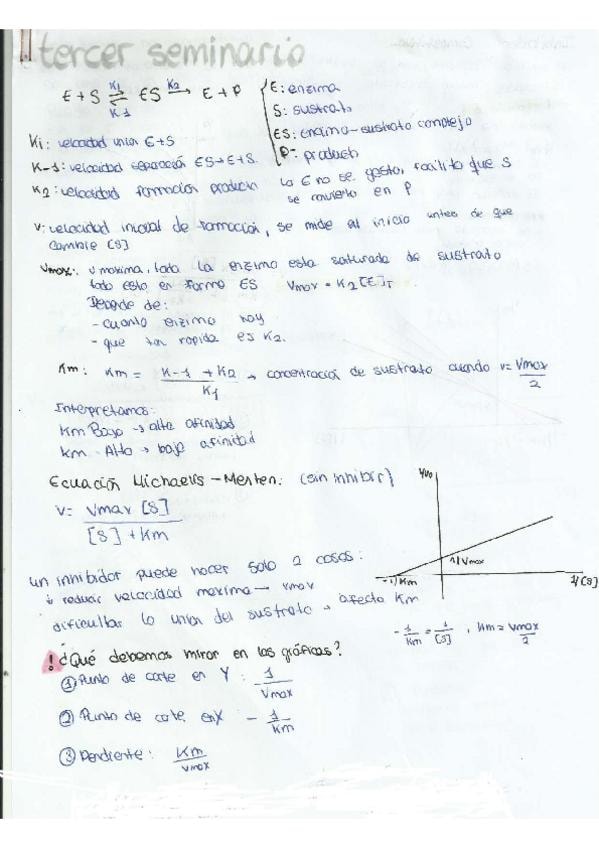 tercer seminario
E + S ⇌ ES → E + P
K1 K2
K-1
E: enzima
S: sustrato
ES: enzima-sustrato complejo
P: producto
K1: velocidad unión E+S
K-1: velocidad separación ES → E+S.
K2: velocidad formación producto
La E no se gasta, facilita que S
se convierta en P
v: velocidad inicial de formación, se mide al inicio antes de que
cambie [S]
Vmax: v maxima, toda la enzima esta saturada de sustrato
todo esta en forma ES Vmax = K2 [E]T
Depende de:
- cuanta enzima hay
- que tan rapida es K2.
Km: Km = (K-1 + K2)/K1 → concentración de sustrato cuando v = Vmax/2
Interpretamos:
Km Bajo → alta afinidad
Km Alto → baja afinidad
Ecuación Michaelis-Menten: (sin inhibir)
v = Vmax [S] / [S] + Km
1/v0
1/Vmax
-1/Km
1/[S]
un inhibidor puede hacer solo 2 cosas:
reducir velocidad maxima → vmax
dificultar la union del sustrato → afecta Km
-1/Km = 1/[S] , Km = Vmax/2
! ¿Qué debemos mirar en las gráficas?
① Punto de corte en Y: 1/Vmax
② Punto de corte en X - 1/Km
③ Pendiente: Km/Vmax